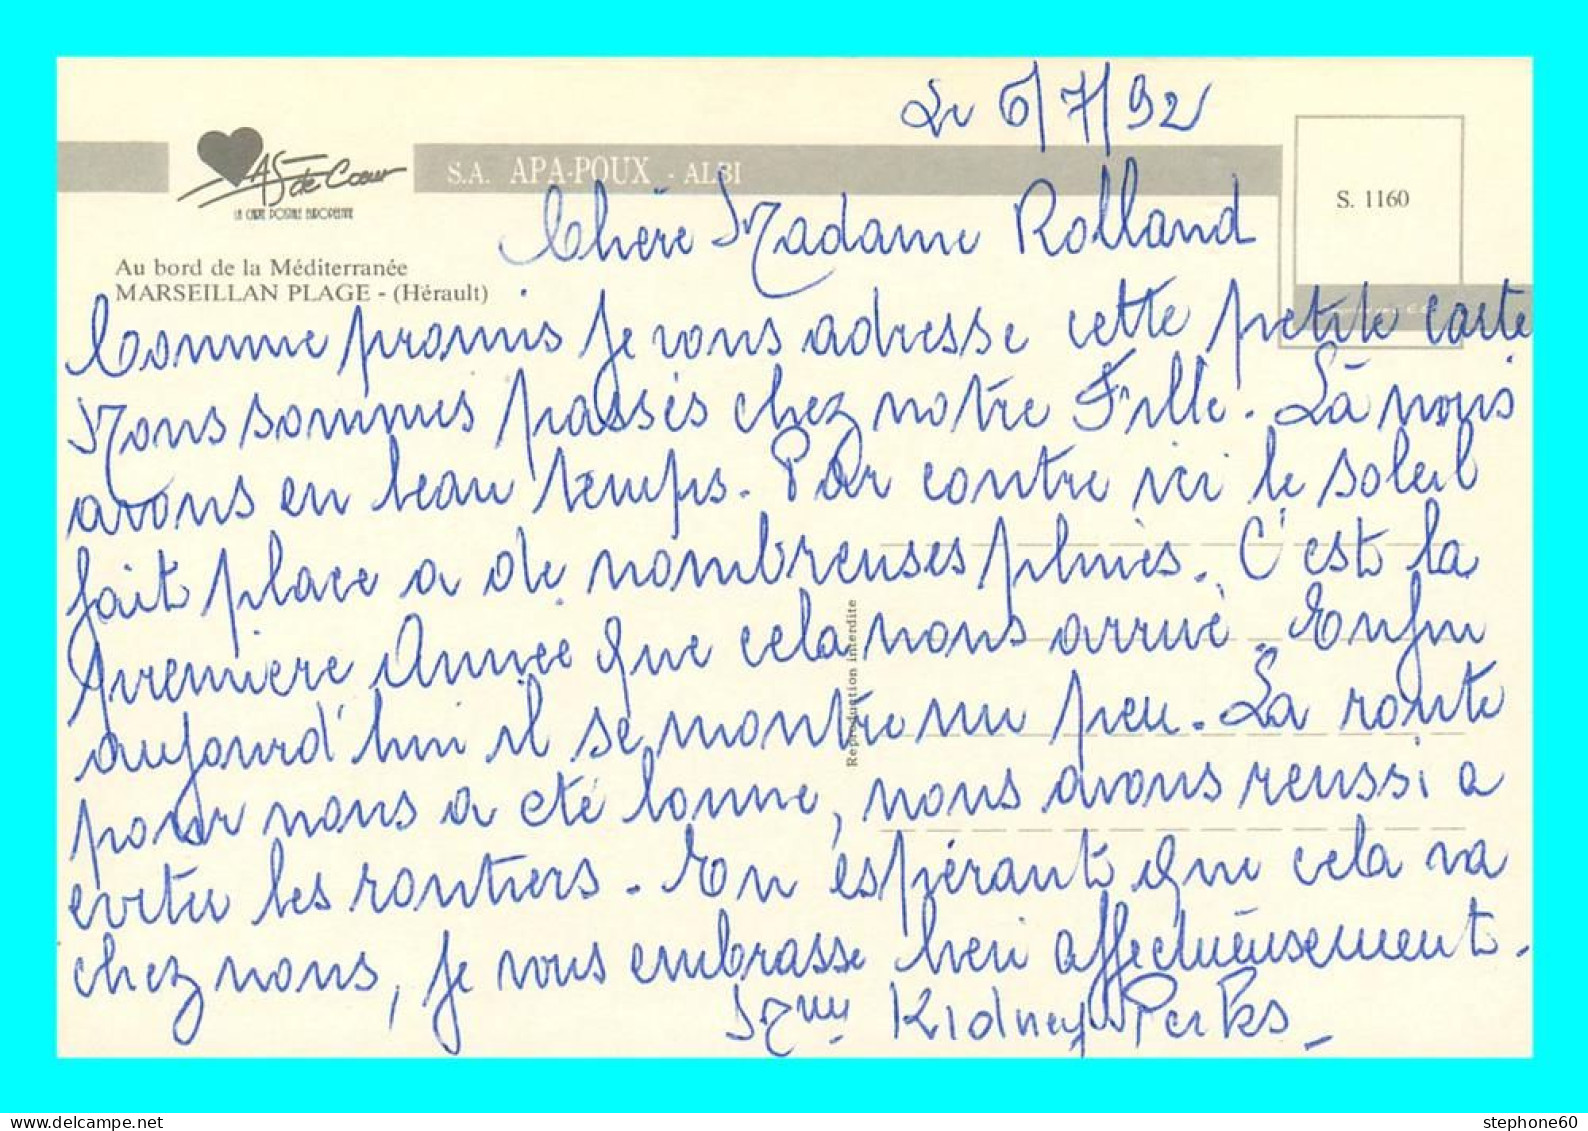 Le 6/7/92
AS de Cœur
LA CARTE POSTALE EUROPEENNE
S.A. APA-POUX - ALBI
S. 1160
Chère Madame Rolland
Au bord de la Méditerranée
MARSEILLAN PLAGE - (Hérault)
Comme promis je vous adresse cette petite carte
Nous sommes passés chez notre Fille. Là nous
avons eu beau temps. Par contre ici le soleil
fait place a de nombreuses pluies. C'est la
première Année que cela nous arrive. Enfin
aujourd'hui il se montre un peu. La route
pour nous a été bonne, nous avons reussi a
eviter les routiers. En espérant que cela va
chez nous, je vous embrasse bien affectueusement.
Mme Kidney Perks
Reproduction interdite
stephone60